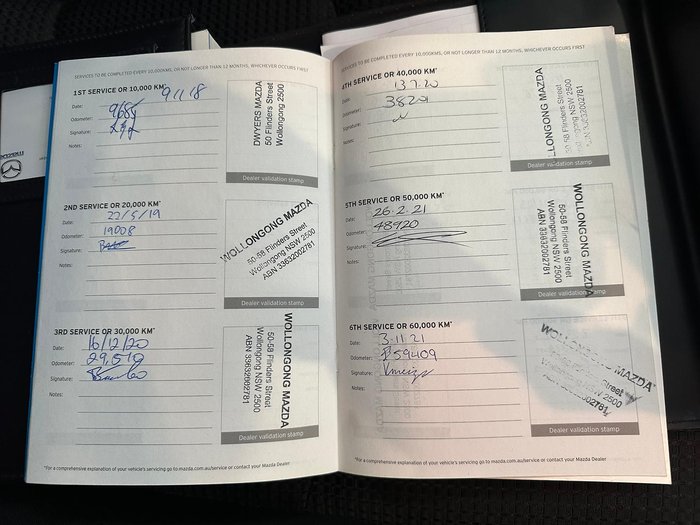 SERVICES TO BE COMPLETED EVERY 10,000KMS, OR NOT LONGER THAN 12 MONTHS, WHICHEVER OCCURS FIRST
1ST SERVICE OR 10,000 KM*
Date: 9/1/18
Odometer: 9654
Signature:
Notes:
DWYERS MAZDA
50 Flinders Street
Wollongong 2500
Dealer validation stamp
2ND SERVICE OR 20,000 KM*
Date: 22/5/19
Odometer: 19008
Signature:
Notes:
WOLLONGONG MAZDA
50-58 Flinders Street
Wollongong NSW 2500
ABN 33632002781
Dealer validation stamp
3RD SERVICE OR 30,000 KM*
Date: 16/12/20
Odometer: 29,579
Signature:
Notes:
WOLLONGONG MAZDA
50-58 Flinders Street
Wollongong NSW 2500
ABN 33632002781
Dealer validation stamp
*For a comprehensive explanation of your vehicle's servicing go to mazda.com.au/service or contact your Mazda Dealer
SERVICES TO BE COMPLETED EVERY 10,000KMS, OR NOT LONGER THAN 12 MONTHS, WHICHEVER OCCURS FIRST
4TH SERVICE OR 40,000 KM*
Date: 13.7.20
Odometer: 38201
Signature:
Notes:
LLONGONG MAZDA
58 Flinders Street
NSW 2500
32002781
Dealer validation stamp
5TH SERVICE OR 50,000 KM*
Date: 26.2.21
Odometer: 48920
Signature:
Notes:
WOLLONGONG MAZDA
50-58 Flinders Street
Wollongong NSW 2500
ABN 33632002781
Dealer validation stamp
6TH SERVICE OR 60,000 KM*
Date: 3.11.21
Odometer: 59409
Signature:
Notes:
WOLLONGONG MAZDA
Street
2500
002781
Dealer validation stamp
*For a comprehensive explanation of your vehicle's servicing go to mazda.com.au/service or contact your Mazda Dealer